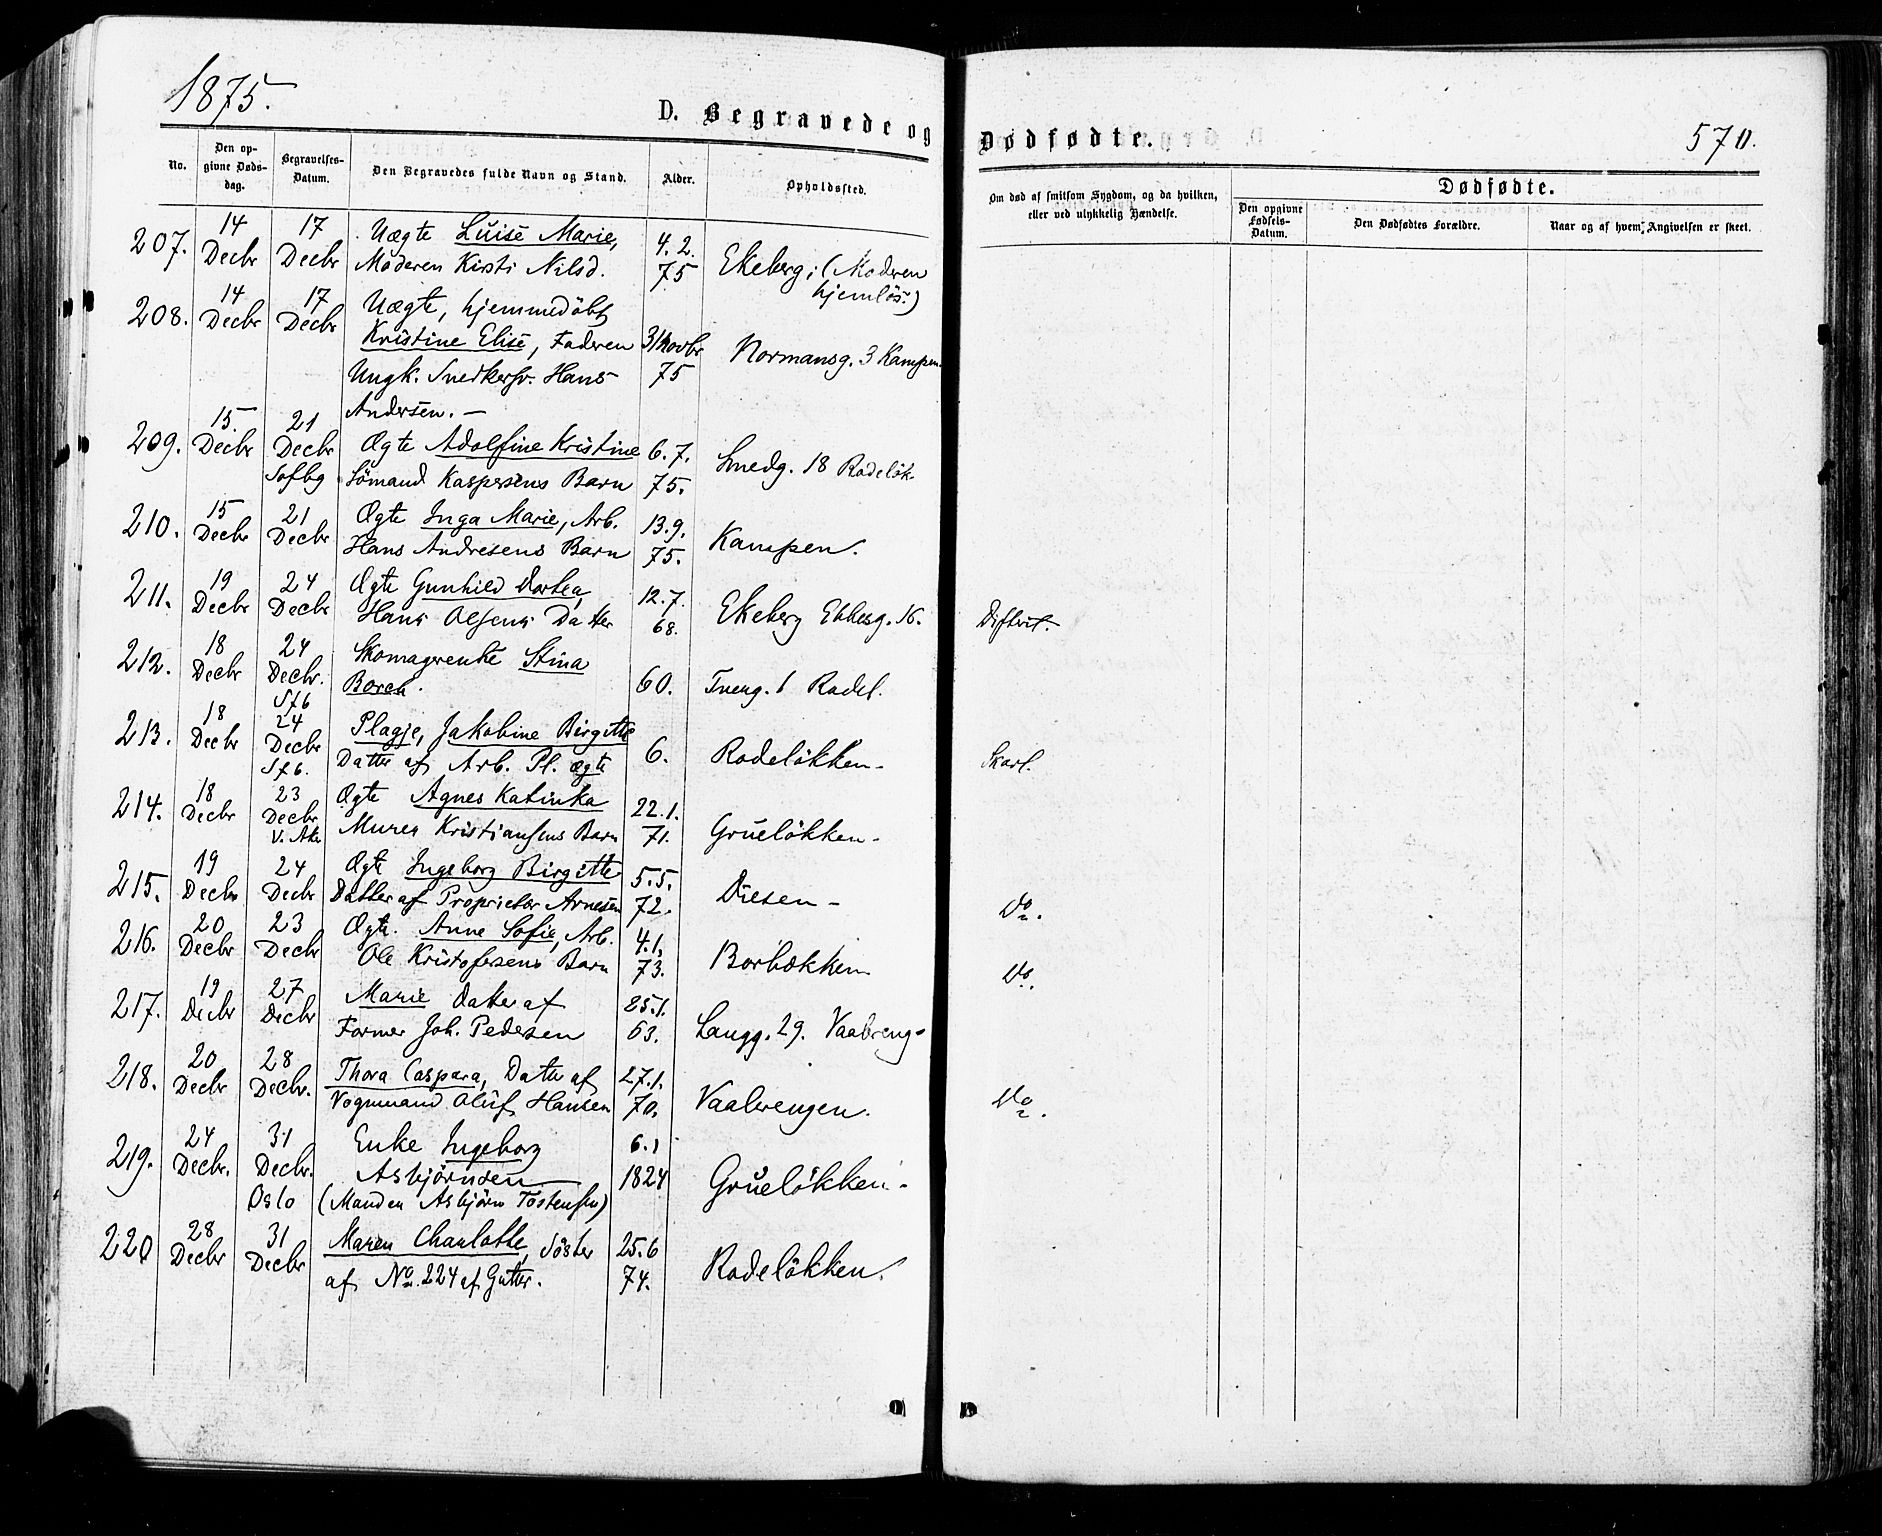 1875.
D. Begravede og
Dødfødte.
570.
No.
Den op-
givne Døds-
dag.
Begravelses-
Datum.
Den Begravedes fulde Navn og Stand.
Alder.
Opholdssted.
Om død af smitsom Sygdom, og da hvilken,
eller ved ulykkelig Hændelse.
Dødfødte.
Den opgivne
Fødsels-
Datum.
Den Dødfødtes Forældre.
Naar og af hvem Angivelsen er skeet.
207. 14 Decbr 17 Decbr Uægte Luise Marie, 4.2.
Moderen Kirsti Nilsd. 75 Ekeberg; (Moderen
hjemløs.)
208. 14 Decbr 17 Decbr Uægte, hjemmedöbt
Kristine Elise, Faderen 3/Novbr Normansg. 3 Kampen
Ungk. Snedkersv. Hans 75
Andersen. —
209. 15 Decbr 21 Decbr Ægte Adolfine Kristine 6.7.
Sofbg Sömand Kaspersens Barn 75. Smedg. 18 Rodeløk
210. 15 Decbr 21 Decbr Ægte Inga Marie, Arb. 13.9.
Hans Andresens Barn 75. Kampen.
211. 19 Decbr 24 Decbr Ægte Gunhild Dortea, 12.7.
Hans Olsens Datter 68. Ekeberg Ebbesg. 16. Difterit.
212. 18 Decbr 24 Decbr. Skomagerenke Stina
Sfb Borch. 60. Tverg. 1 Rodel.
213. 18 Decbr 24 Decbr Plagje, Jakobine Birgitte
Sfb. Datter af Arb. Pl. ægte 6. Rodelökken - Skarl.
214. 18 Decbr 23 Decbr Ægte Agnes Katinka 22.1.
V. Aker Murer Kristiansens Barn 71. Gruelökken -
215. 19 Decbr 24 Decbr Ægte Ingeborg Birgitte 5.5.
Datter af Proprietær Arnesen 72. Diesen - Do.
216. 20 Decbr 23 Decbr Ægte. Anne Sofie, Arb. 4.1.
Ole Kristofersens Barn 73. Borbækken Do.
217. 19 Decbr 27 Decbr Marie Datter af 25.1.
Former Joh. Pedersen 63. Langg. 29. Vaalereng-
218. 20 Decbr 28 Decbr. Thora Caspara, Datter af 27.1.
Vognmand Oluf Hansen 70. Vaalerengen. Do.
219. 24 Decbr. 31 Decbr. Enke Ingeborg 6.1
Asbjörnsen 1824 Gruelökken -
Oslo (Manden Asbjörn Tostensen)
220 28 Decbr 31 Decbr Maren Charlotte, Söster 25.6
af No. 224 af Gutter. 74. Rodelökken.